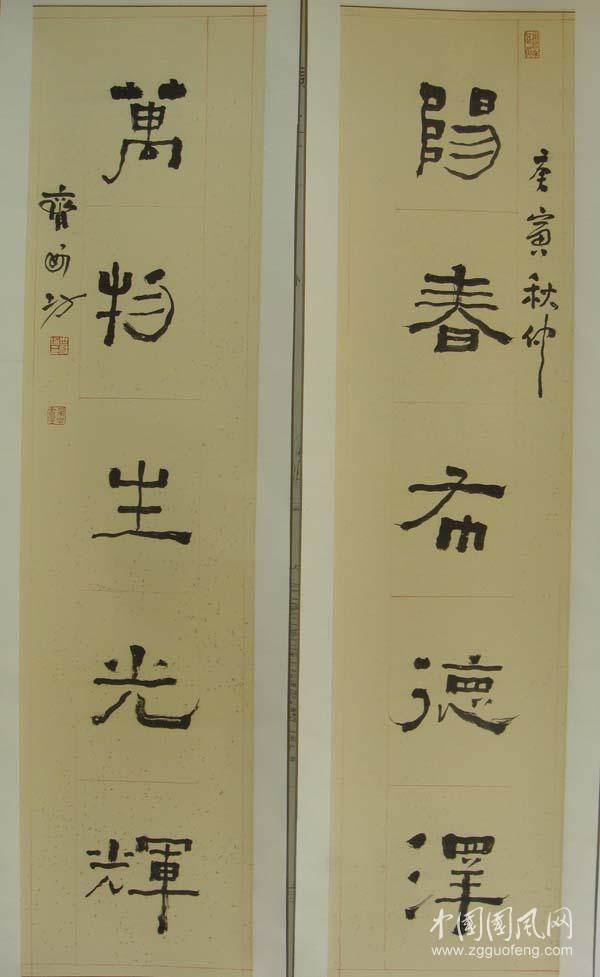 陽春布德澤
庚寅秋仲
萬物生光輝
中国國风网
www.zgguofeng.com